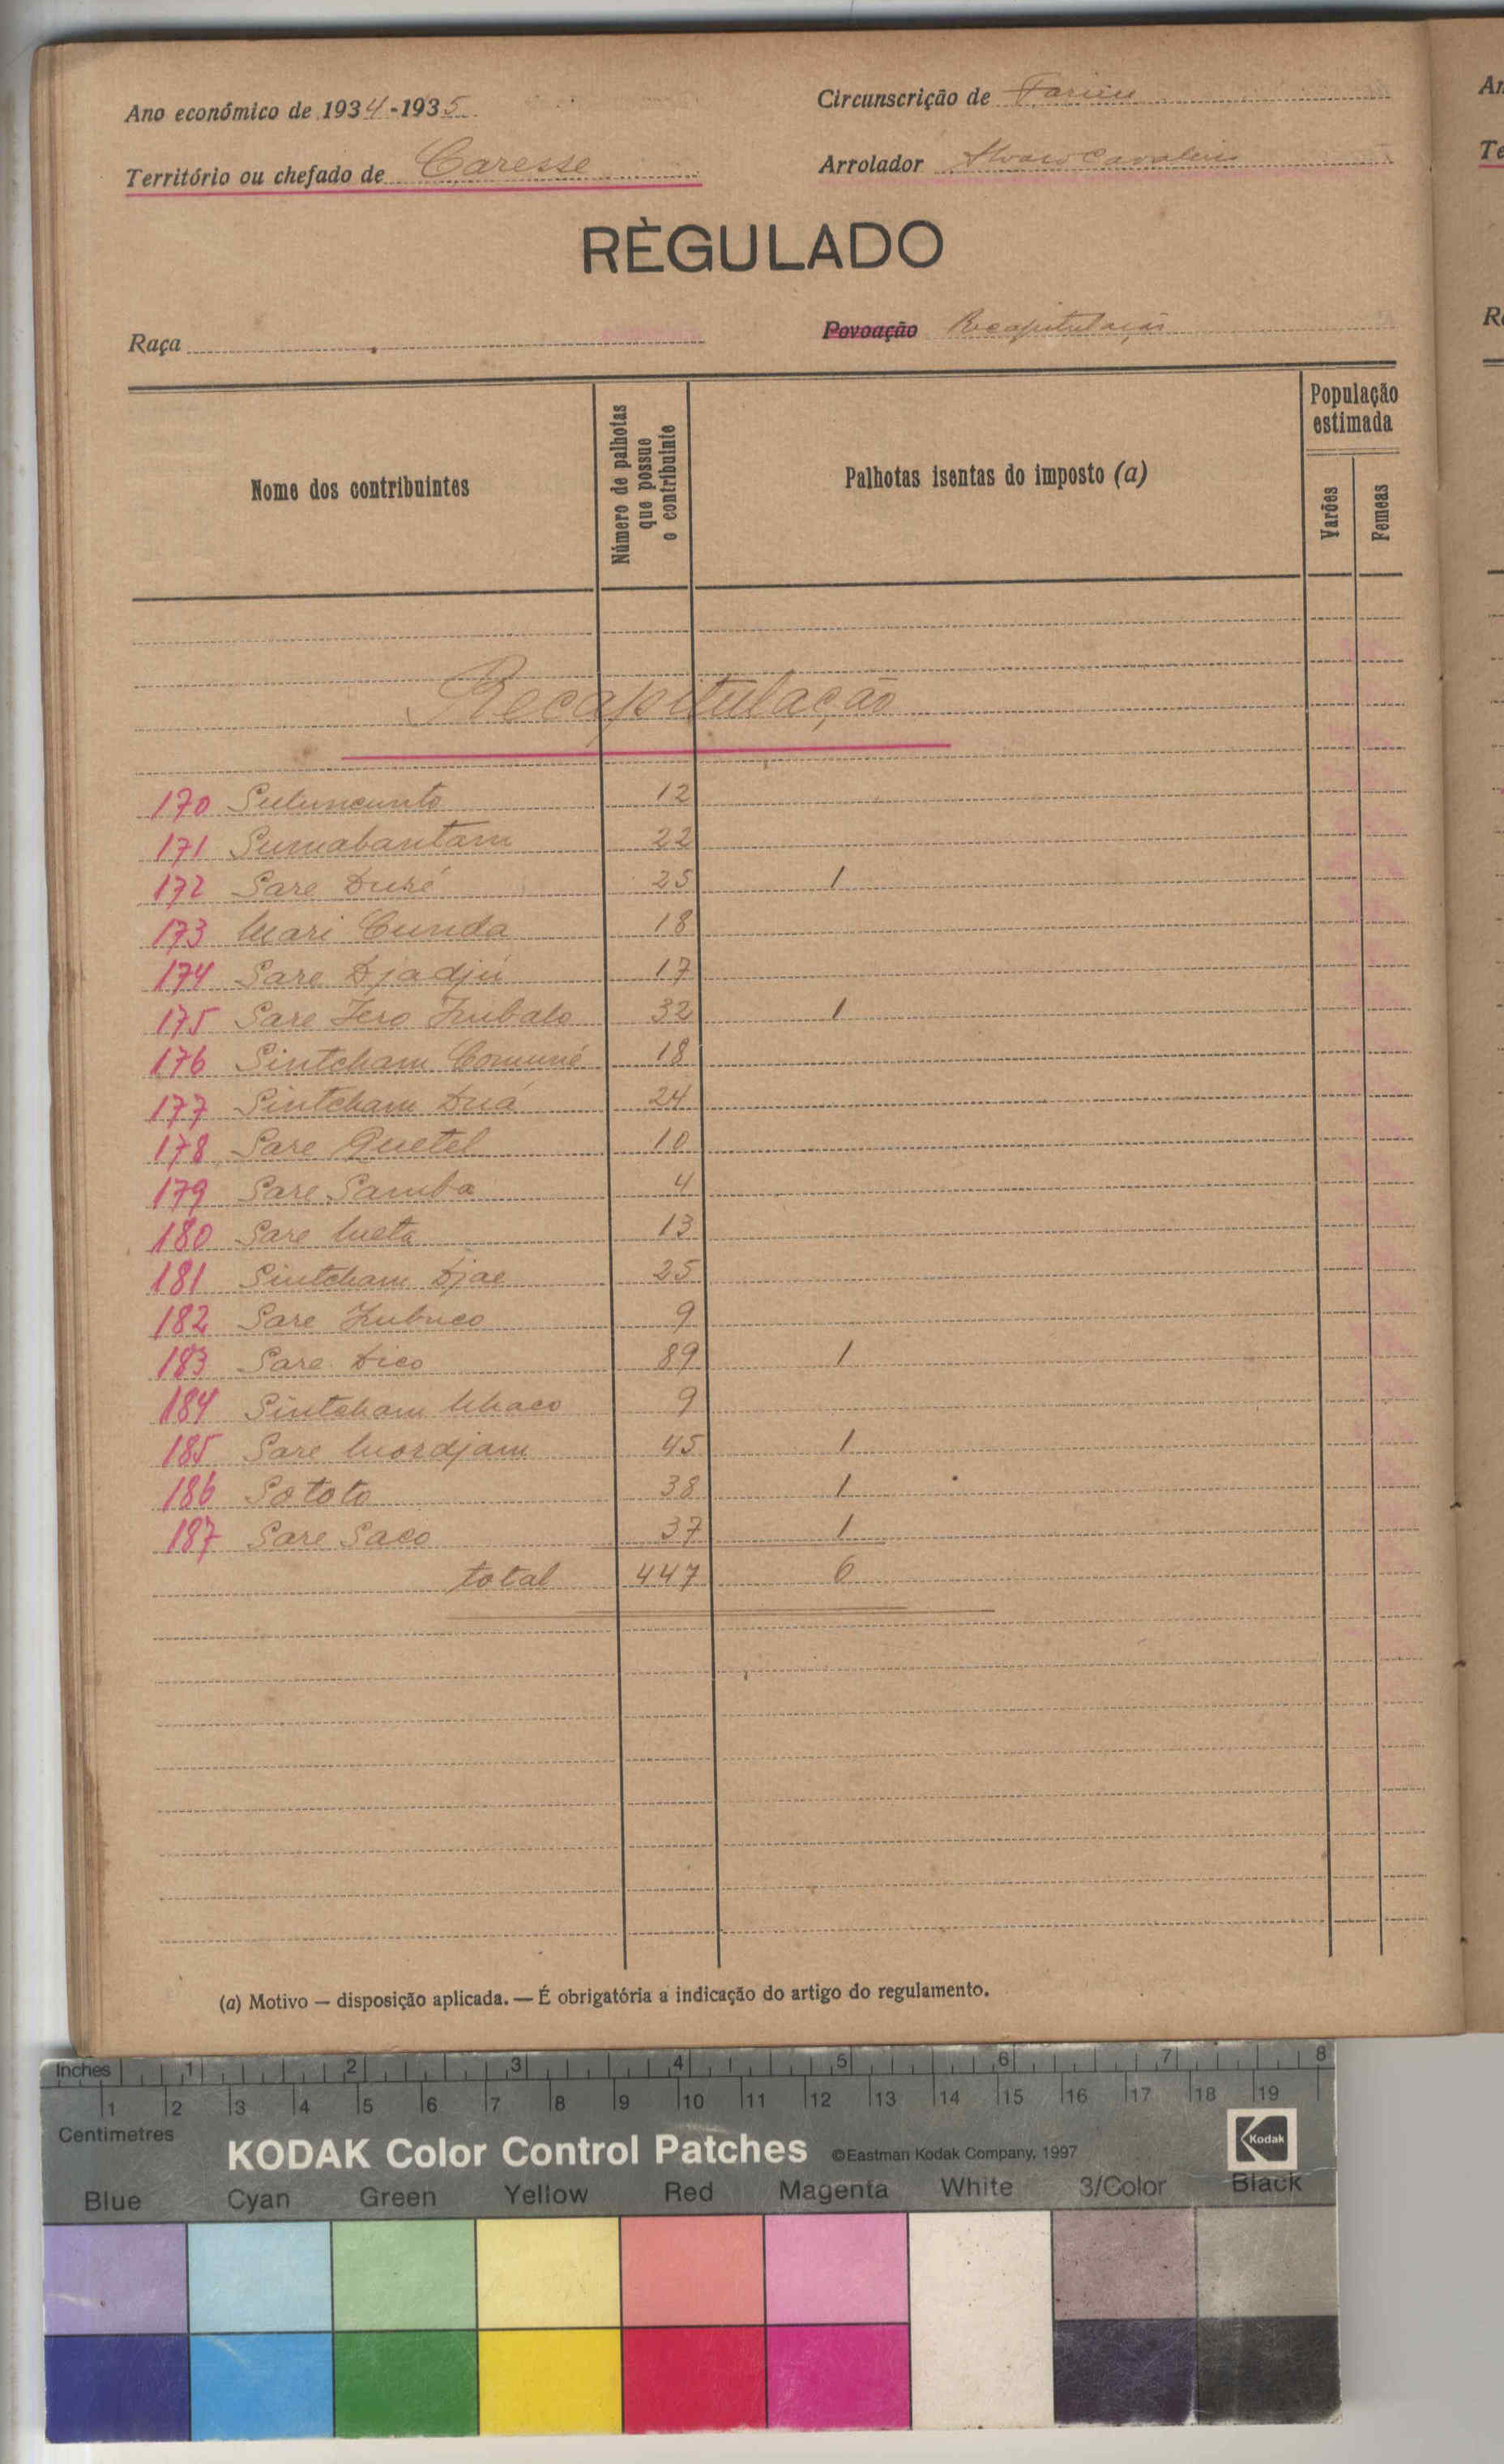 Ano económico de 1934-1935
Circunscrição de Farim
Território ou chefado de Caresse
Arrolador Alvaro Cavaleiro
RÈGULADO
Raça
Povoação Recapitulação
Nome dos contribuintes
Número de palhotas que possue o contribuinte
Palhotas isentas do imposto (a)
População estimada
Varões
Femeas
Recapitulação
170 12
171 Sumabantam 22
172 Sare Duré 25 1
173 Mari Cunda 18
174 Sare Djadjú 17
175 Sare Jero 32 1
176 Sintcham Comuné 18
177 Sintcham Duá 24
178 Sare Quetel 10
179 Sare Samba 4
180 Sare 13
181 Sintcham Djae 25
182 Sare 9
183 Sare Dico 89 1
184 Sintcham 9
185 Sare 45 1
186 Sototo 38 1
187 Sare Saco 37 1
total 447 6
(a) Motivo — disposição aplicada. — É obrigatória a indicação do artigo do regulamento.
Inches 1 2 3 4 5 6 7 8
1 2 3 4 5 6 7 8 9 10 11 12 13 14 15 16 17 18 19
Centimetres
KODAK Color Control Patches ©Eastman Kodak Company, 1997 Kodak
Blue Cyan Green Yellow Red Magenta White 3/Color Black
An
Te
R